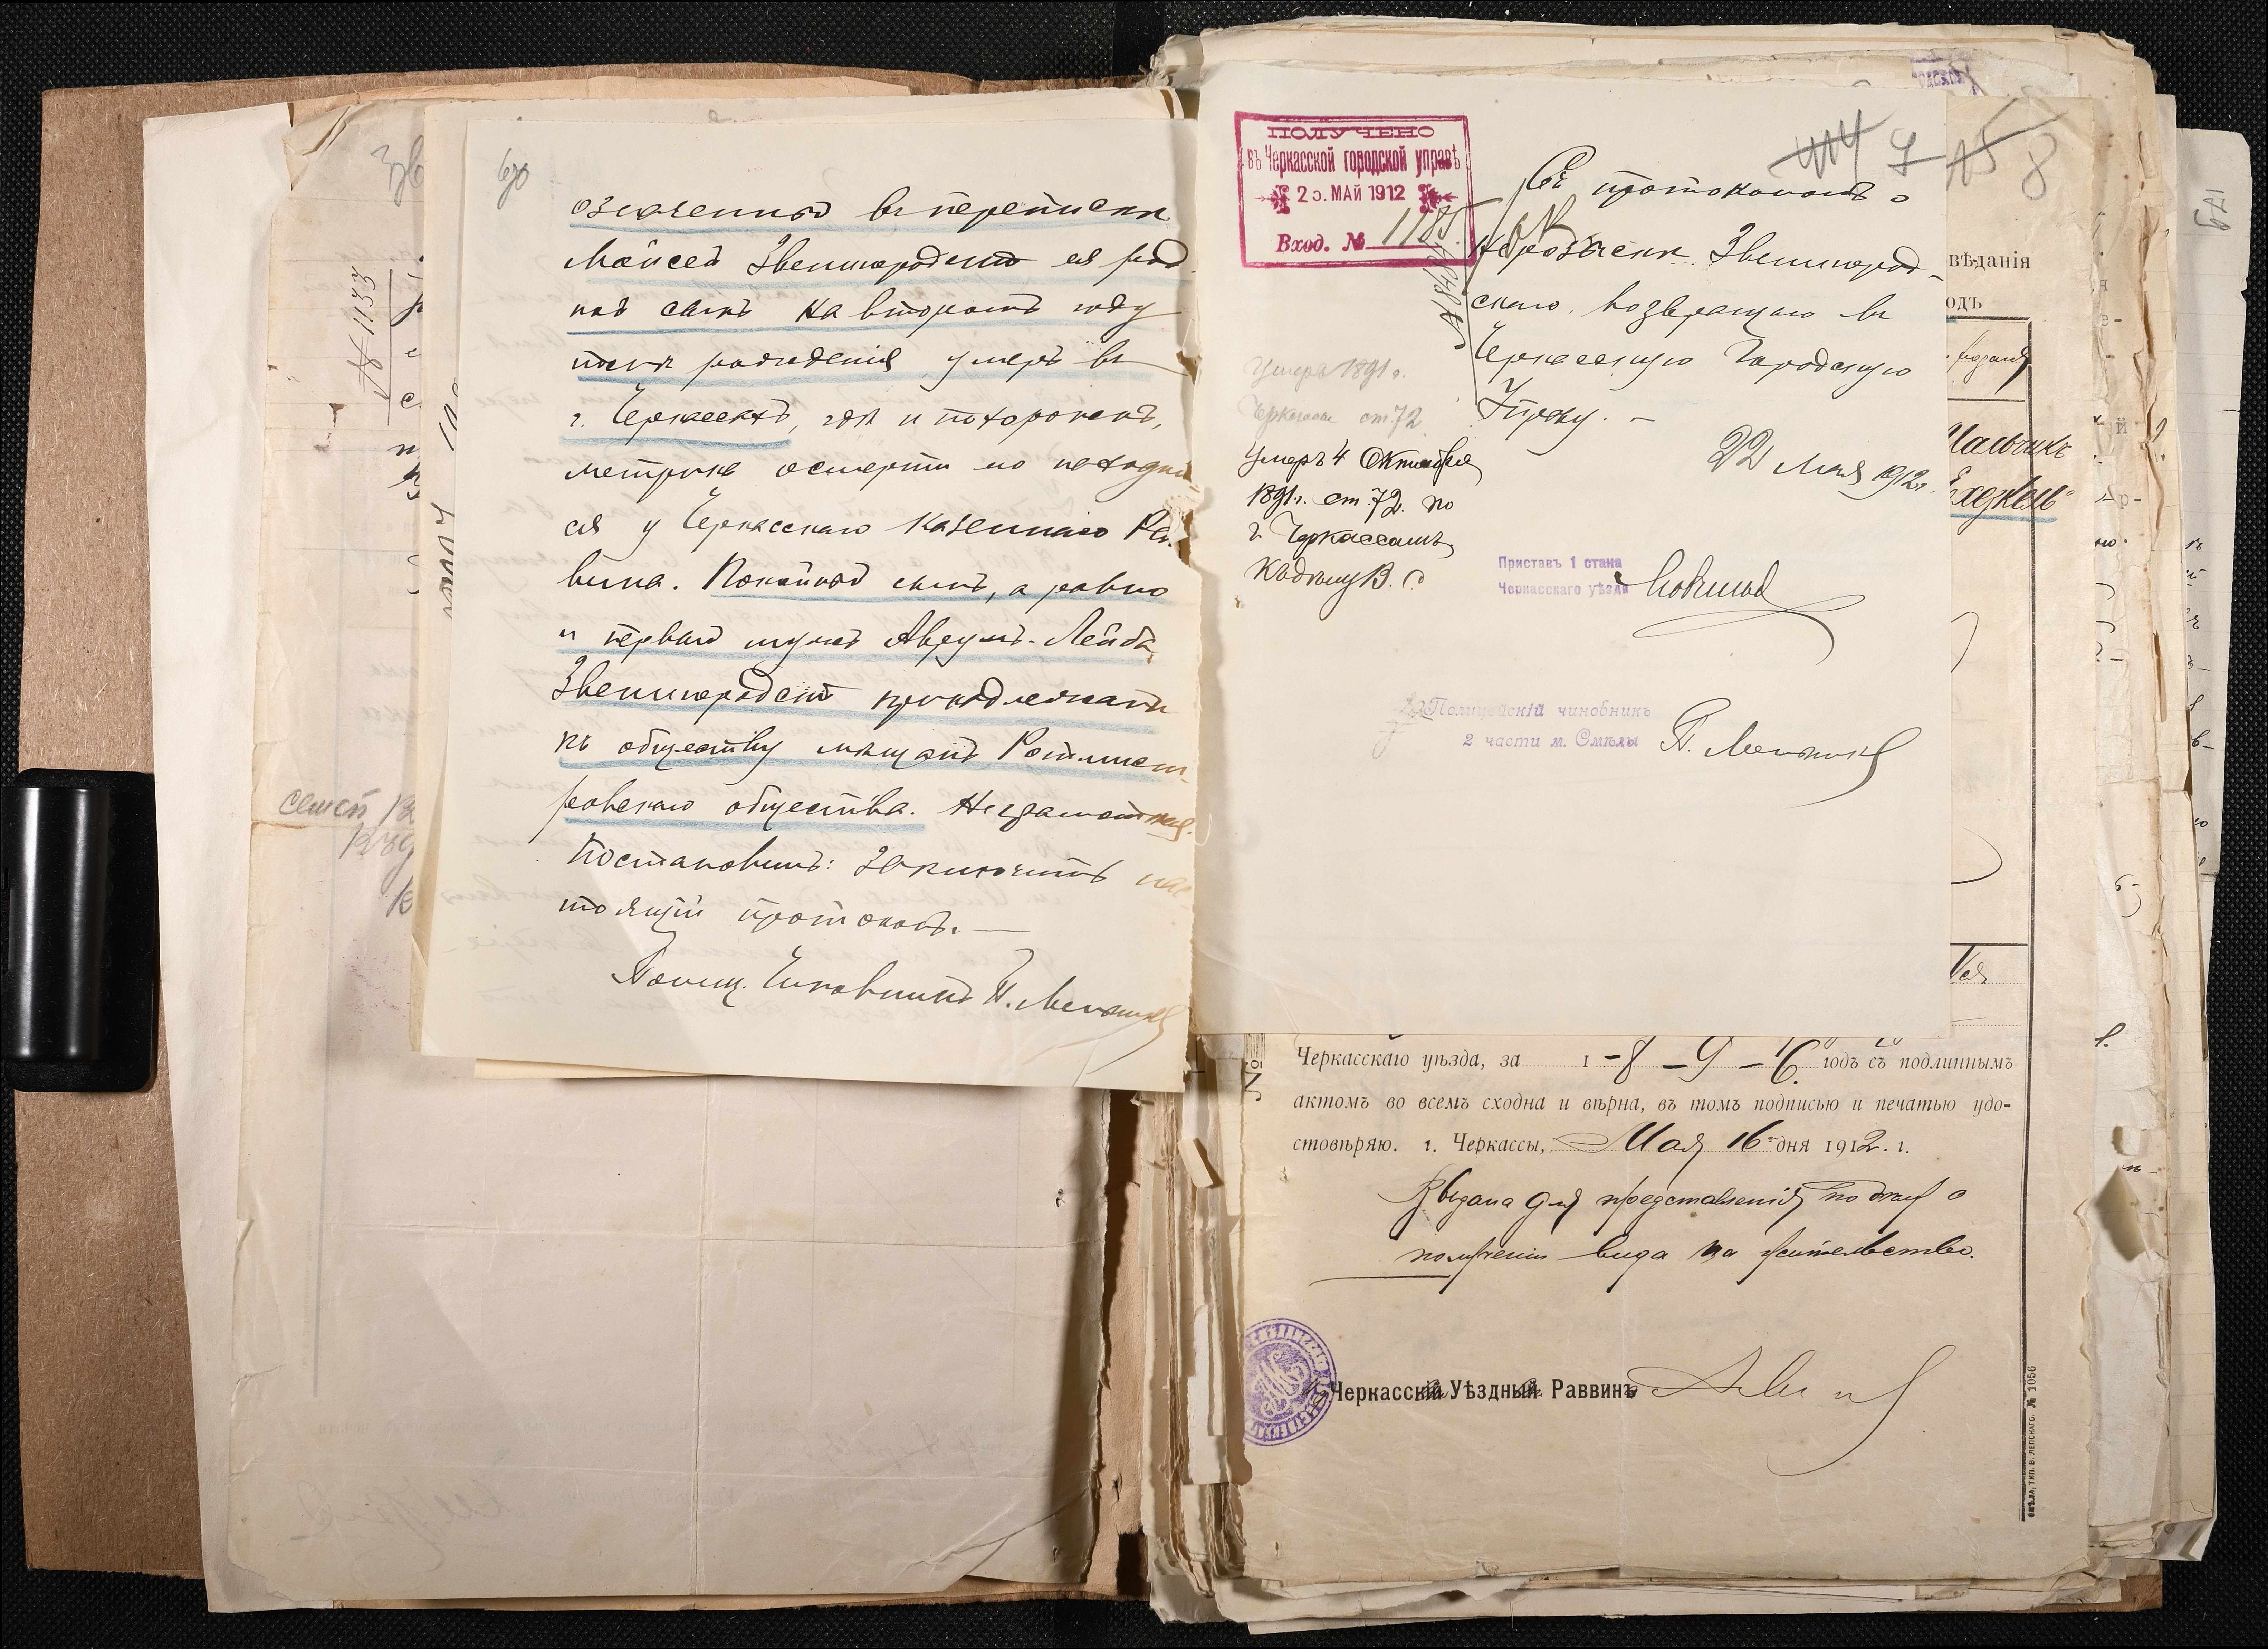 означенный въ переписки
Мойсей Звенигородскій ея род-
ной сынъ на второмъ году
послѣ рожденія умеръ въ
г. Черкассахъ, гдѣ и похороненъ,
метрика о смерти его находит-
ся у Черкасскаго Казеннаго Ра-
вина. Покойный сынъ, а равно
и первый мужъ Аврумъ-Лейба
Звенигородскій принадлежали
къ обществу мѣщанъ Ротмист-
ровскаго общества. Неграмотная.
Постановилъ: заключить нас-
тоящій протоколъ.—
Полиц. Чиновникъ П.
№ 1133
семей
ПОЛУЧЕНО
въ Черкасской городской управѣ
МАЙ 1912
Вход. № 1185
Съ протоколомъ о
розыскѣ Звенигород-
скаго, возвращаю въ
Черкасскую Городскую
Управу. —
22 Мая 1912 г.
Умеръ 1891 г.
Черкассы ст. 72
Умеръ 4 Октября
1891 г. ст. 72. по
г. Черкассамъ
Приставъ 1 стана
Черкасскаго уѣзда
Полицейскій чиновникъ
2 части м. Смѣлы
П.
7
8
вѣданія
одъ
Мальчикъ
Ехезкель"
№
Черкасскаго уѣзда, за 1-8-9-6. годъ съ подлиннымъ
актомъ во всемъ сходна и вѣрна, въ томъ подписью и печатью удо-
стовѣряю. г. Черкассы, Мая 16 дня 1912. г.
Выдана для представленія подачи о
полученіи вида на жительство.
Черкасскій Уѣздный Раввинъ
СМѢЛА, ТИП. В. ЛЕПСКАГО. № 1056